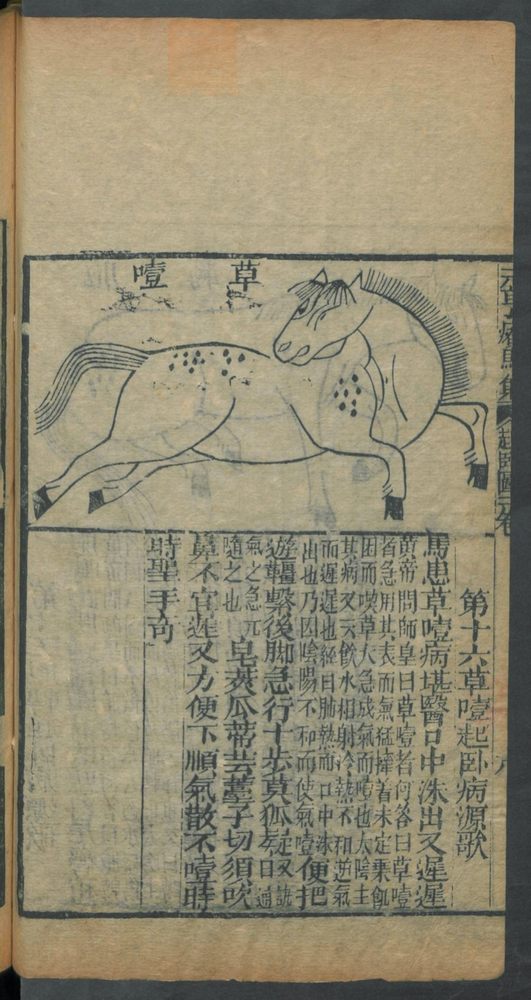 草噎
第十六草噎起卧病源歌
馬患草噎病堪醫口中沫出又遲遲
黄帝問師皇曰草噎者何答曰草噎
者急用其表而無猛撞着未定乗飢
困而喫草太急成氣而噎也太陰主
其病又云飲水相射冷熱不和逆氣
而遲遲也經曰肺熱而口中沫
出也乃因陰陽不和而使氣噎便把
遊韁繫後脚急行十步莫狐疑又訣曰通
氣之急亢隨之也皂莢瓜蒂芸薹子切須吹
鼻不宜遲又方便下順氣散不噎時
時聖手奇